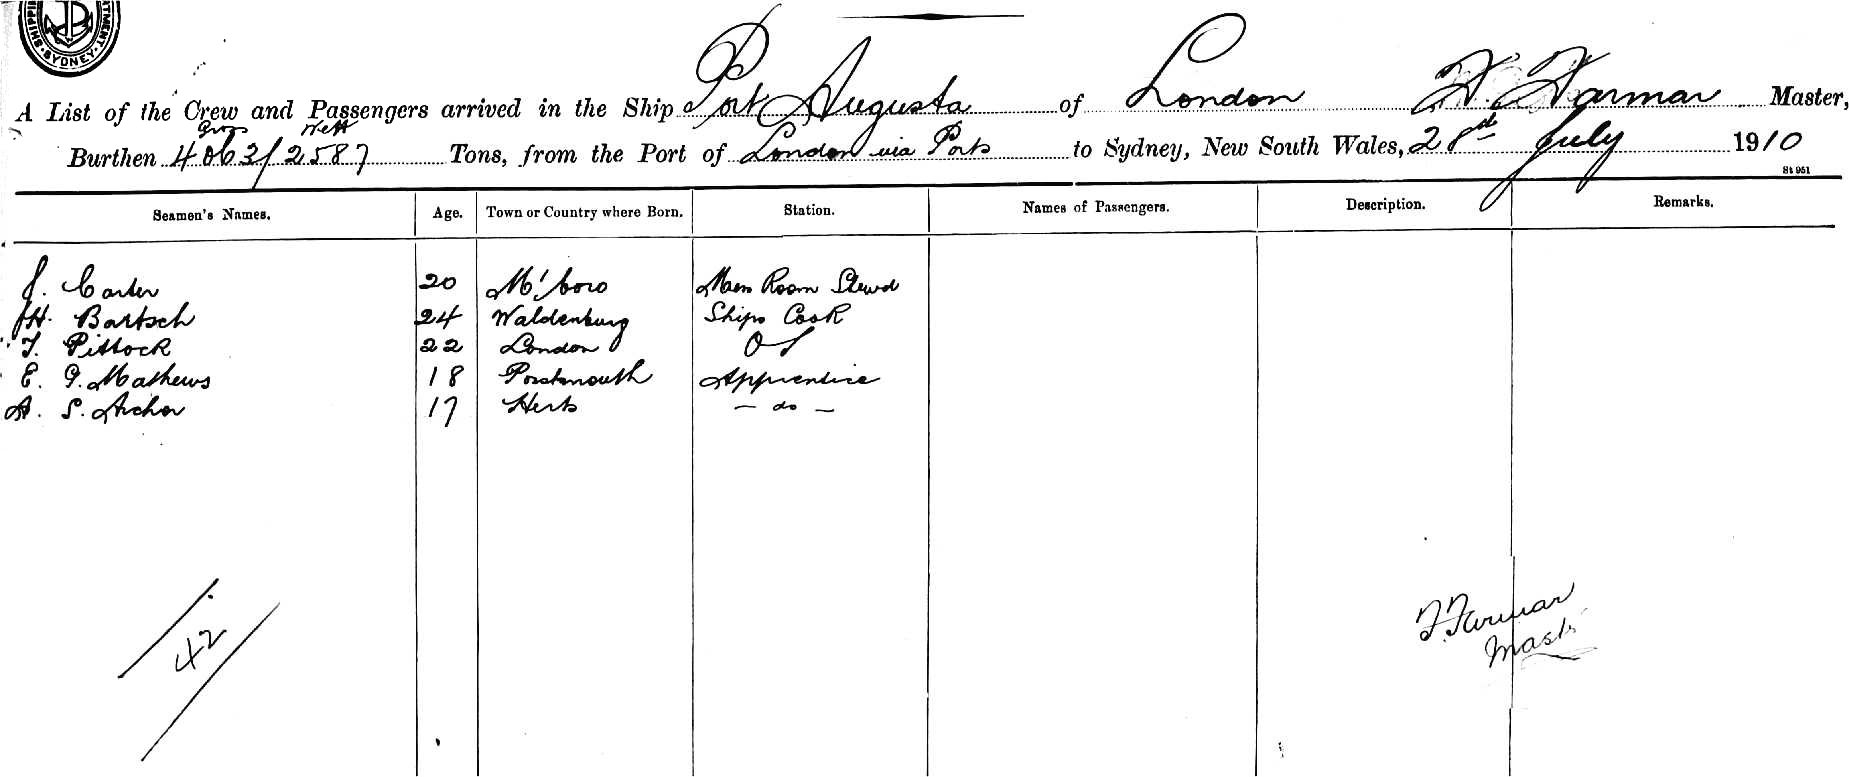 SHIPPI ARTMENT. SYDNEY.
A List of the Crew and Passengers arrived in the Ship Port Augusta of London F. Farmar Master,
Gross Nett
Burthen 4063/2587 Tons, from the Port of London via Ports to Sydney, New South Wales, 28th July 1910
St 951
Seamen's Names. Age. Town or Country where Born. Station. Names of Passengers. Description. Remarks.
J. Carter 20 M'boro Mess Room Stewd
H. Bartsch 24 Waldenburg Ships Cook
T. Pittock 22 London OS
E. G. Mathews 18 Portsmouth Apprentice
A. S. Archer 17 Herts - do -
42
F. Farmar
Mastr